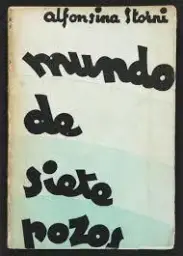 alfonsina Storni
mundo
de
siete
pozos